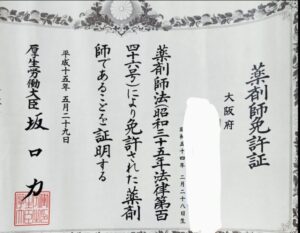 薬剤師免許証
大阪府
二月二十八日生
薬剤師法(昭和三十五年法律第百
四十六号)により免許された薬剤
師であることを証明する
平成十五年五月二十九日
厚生労働大臣 坂口力